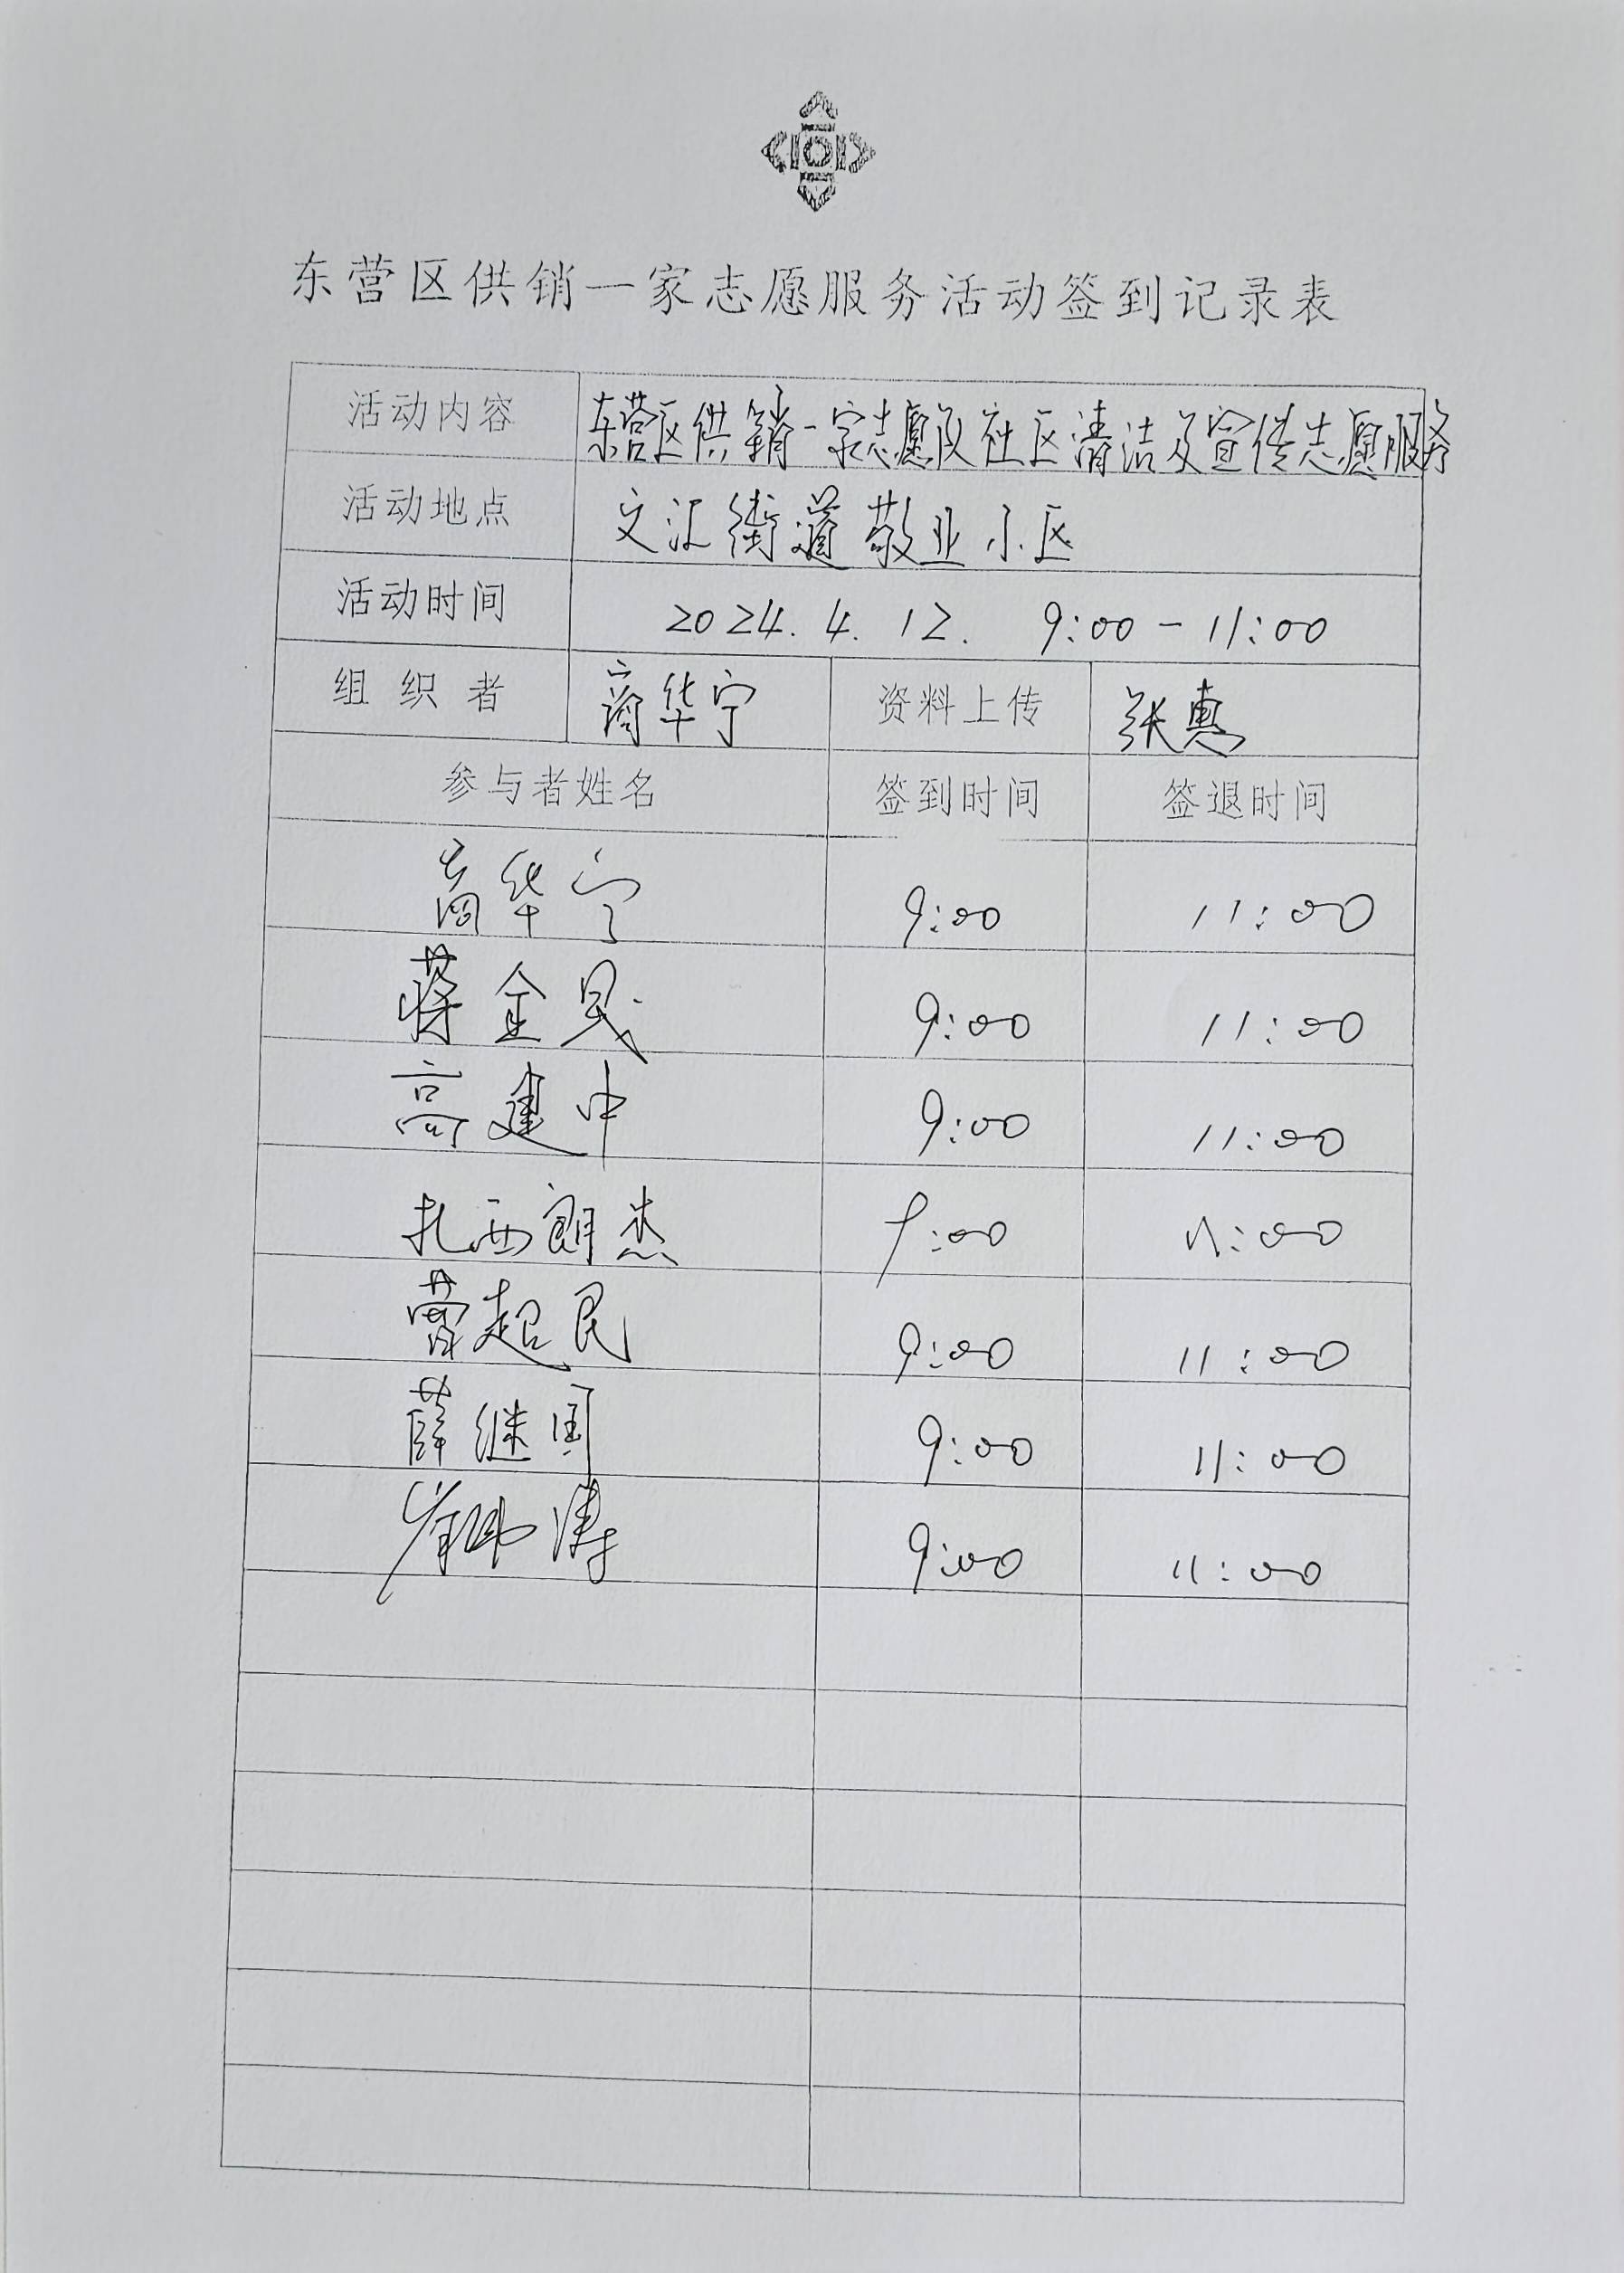 东营区供销一家志愿服务活动签到记录表
活动内容 东营区供销一家志愿队社区清洁及宣传志愿服务
活动地点 文汇街道敬业小区
活动时间 2024.4.12. 9:00-11:00
组织者 商华宁 资料上传 张惠
参与者姓名 签到时间 签退时间
商华宁 9:00 11:00
蒋金 9:00 11:00
高建中 9:00 11:00
扎西朗杰 9:00 11:00
曹超民 9:00 11:00
薛继国 9:00 11:00
涛 9:00 11:00